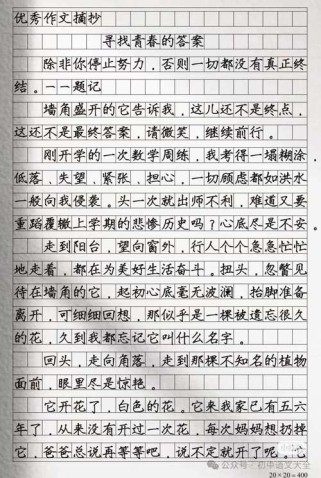 优秀作文摘抄
寻找青春的答案
除非你停止努力，否则一切都没有真正终
结。——题记
墙角盛开的它告诉我，这儿还不是终点，
这还不是最终答案，请微笑，继续前行。
刚开学的一次数学周练，我考得一塌糊涂，
低落、失望、紧张、担心，一切顾虑都如洪水
一般向我侵袭。头一次就出师不利，难道又要
重蹈覆辙上学期的悲惨历史吗？心底尽是不安。
走到阳台，望向窗外，行人个个急急忙忙
地走着，都在为美好生活奋斗。扭头，忽瞥见
待在墙角的它，起初心底毫无波澜，抬脚准备
离开，可细细回想，那似乎是一棵被遗忘很久
的花，久到我都忘记它叫什么名字。
回头，走向角落，走到那棵不知名的植物
面前，眼里尽是惊艳。
它开花了，白色的花。它来我家已有五六
年了，从来没有开过一次花，每次妈妈想扔掉
它，爸爸总说再等等吧，说不定就开了呢。它
公众号·初中语文大全
20×20=400